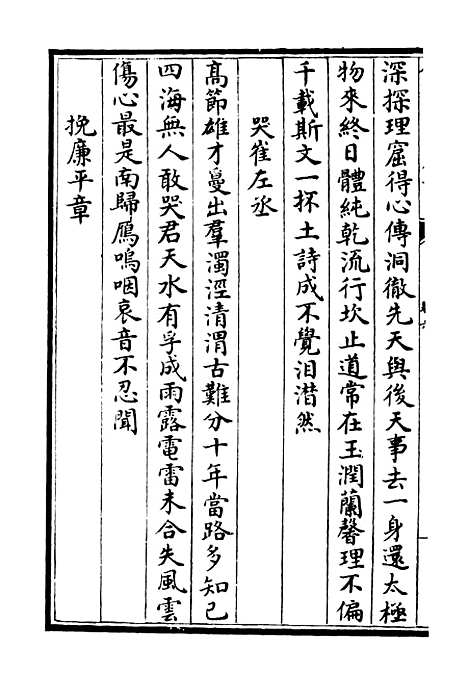 深探理窟得心傳洞徹先天與後天事去一身還太極
物來終日體純乾流行坎止道常在玉潤蘭馨理不偏
千載斯文一抔土詩成不覺泪潸然
哭崔左丞
高節雄才敻出羣濁涇清渭古難分十年當路多知己
四海無人敢哭君天水有孚成雨露電雷未合失風雲
傷心最是南歸鴈嗚咽哀音不忍聞
挽廉平章